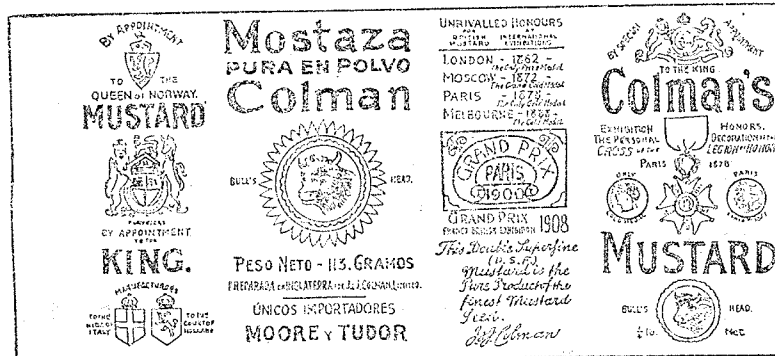 BY APPOINTMENT
TO THE
QUEEN OF NORWAY.
MUSTARD
PURVEYORS
BY APPOINTMENT
TO THE
KING.
MANUFACTURERS
TO THE KING OF ITALY
TO THE COURT OF
Mostaza
PURA EN POLVO
Colman
BULL'S HEAD.
PESO NETO - 113. GRAMOS
PREPARADA EN INGLATERRA POR J. & J. COLMAN, LIMITED.
ÚNICOS IMPORTADORES
MOORE Y TUDOR
UNRIVALLED HONOURS
FOR BRITISH MUSTARD AT INTERNATIONAL EXHIBITIONS
LONDON - 1862 -
The Only Prize Medal.
MOSCOW - 1872 -
The Grand Gold Medal.
PARIS - 1878 -
The Only Gold Medal.
MELBOURNE - 1888 -
The Gold Medal.
GRAND PRIX
PARIS
1900
GRAND PRIX
FRANCO BRITISH EXHIBITION 1908
This Double Superfine
(D.S.F.)
Mustard is the
Pure Product of the
finest Mustard
Seed.
J&J Colman
BY SPECIAL APPOINTMENT
TO THE KING
Colman's
EXHIBITION HONORS.
THE PERSONAL DECORATION
CROSS OF THE LEGION OF HONOR
PARIS 1878
ONLY
PARIS
MUSTARD
BULL'S HEAD.
¼ lb. Net.